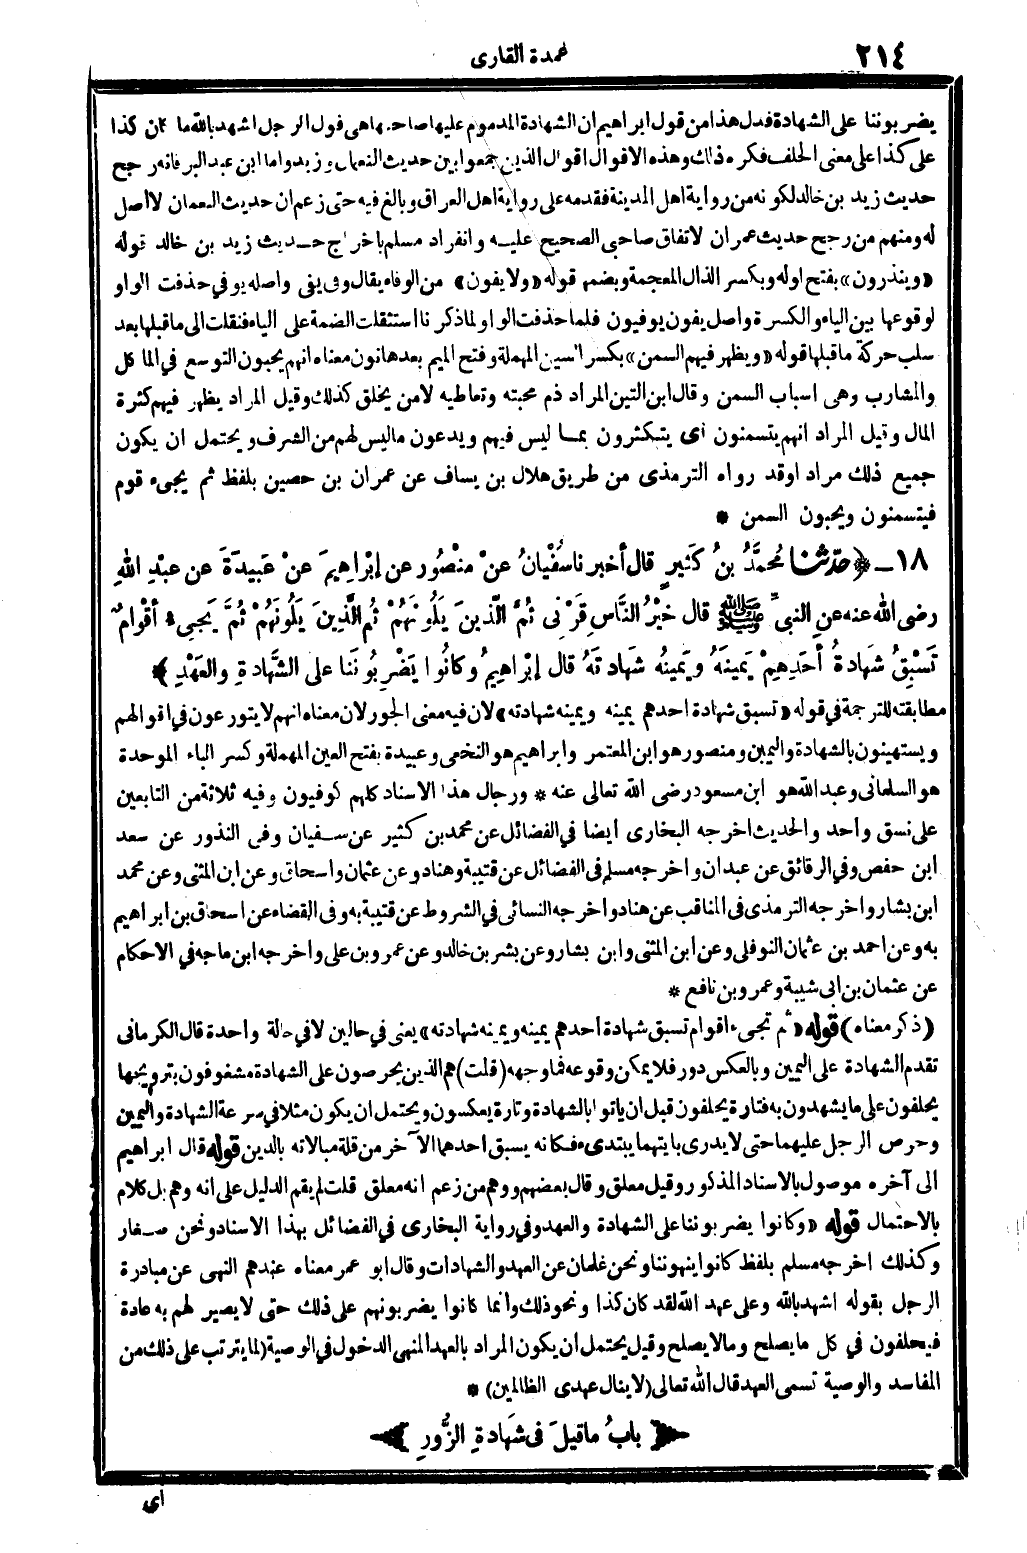 ٢١٤
عمدة القارى
يضربوننا على الشهادة فدل هذا من قول ابراهيم ان الشهادة المدموم عليها صاحبها هى قول الرجل اشهد بالله ما كان كذا
على كذا على معنى الحلف فكره ذلك وهذه الاقوال اقوال الذين جمعوا بين حديث النعمان وزيد واما ابن عبد البر فانه رجح
حديث زيد بن خالد لكونه من رواية اهل المدينة فقدمه على رواية اهل العراق وبالغ فيه حتى زعم ان حديث النعمان لا أصل
له ومنهم من رجح حديث عمران لاتفاق صاحبى الصحيح عليه وانفراد مسلم باخراج حديث زيد بن خالد قوله
«وينذرون» بفتح اوله وبكسر الذال المعجمة وبضمها قوله «ولا يفون» من الوفاء يقال وفى يفى واصله يوفي حذفت الواو
لوقوعها بين الياء والكسرة واصل يفون يوفيون فلما حذفت الواو لما ذكرنا استثقلت الضمة على الياء فنقلت الى ما قبلها بعد
سلب حركة ما قبلها قوله «ويظهر فيهم السمن» بكسر السين المهملة وفتح الميم بعدها نون معناه انهم يحبون التوسع في الماكل
والمشارب وهى اسباب السمن وقال ابن التين المراد ذم محبته وتعاطيه لا من يخلق كذلك وقيل المراد يظهر فيهم كثرة
المال وقيل المراد انهم يتسمنون أى يتكثرون بما ليس فيهم ويدعون ما ليس لهم من الشرف ويحتمل ان يكون
جميع ذلك مرادا وقد رواه الترمذى من طريق هلال بن يساف عن عمران بن حصين بلفظ ثم يجىء قوم
فيتسمنون ويحبون السمن *
١٨ـ ﴿حدّثنا مُحمَّدُ بنُ كَثيرٍ قال أخبرنا سُفْيانُ عنْ منْصُورٍ عن إبْراهِيمَ عنْ عَبيدَةَ عن عبْدِ اللهِ
رضى الله عنه عنِ النبيِّ ﷺ قال خيْرُ النَّاسِ قَرْنِى ثُمَّ الَّذينَ يَلُونَهُمْ ثُمَّ الَّذِينَ يَلُونَهُمْ ثُمَّ يَجىءُ أقْوامٌ
تَسْبِقُ شَهادةُ أحَدِهِمْ يَمِينَهُ ويَمِينُهُ شَهادَتَهُ قال إبْراهِيمُ وكانُوا يَضْرِبُونَنا على الشَّهادةِ والعَهْدِ﴾
مطابقته للترجمة في قوله «تسبق شهادة احدهم يمينه ويمينه شهادته» لان فيه معنى الجور لان معناه انهم لا يتورعون في اقوالهم
ويستهينون بالشهادة واليمين ومنصور هو ابن المعتمر وابراهيم هو النخعى وعبيدة بفتح العين المهملة وكسر الباء الموحدة
هو السلمانى وعبد الله هو ابن مسعود رضى الله تعالى عنه * ورجال هذا الاسناد كلهم كوفيون وفيه ثلاثة من التابعين
على نسق واحد والحديث اخرجه البخارى ايضا في الفضائل عن محمد بن كثير عن سفيان وفى النذور عن سعد
ابن حفص وفي الرقائق عن عبدان واخرجه مسلم فى الفضائل عن قتيبة وهناد وعن عثمان واسحاق وعن ابن المثنى وعن محمد
ابن بشار واخرجه الترمذى فى المناقب عن هناد واخرجه النسائى في الشروط عن قتيبة به وفى القضاء عن اسحاق بن ابراهيم
به وعن احمد بن عثمان النوفلى وعن ابن المثنى وابن بشار وعن بشر بن خالد وعن عمرو بن على واخرجه ابن ماجه في الاحكام
عن عثمان بن ابى شيبة وعمرو بن نافع *
(ذكر معناه) قوله «ثم تجىء اقوام تسبق شهادة احدهم يمينه ويمينه شهادته» يعنى في حالين لا في حالة واحدة قال الكرمانى
تقدم الشهادة على اليمين وبالعكس دور فلا يمكن وقوعه فما وجهه (قلت) هم الذين يحرصون على الشهادة مشغوفون بترويجها
يحلفون على ما يشهدون به فتارة يحلفون قبل ان ياتوا بالشهادة وتارة يعكسون ويحتمل ان يكون مثلا في سرعة الشهادة واليمين
وحرص الرجل عليهما حتى لا يدرى بايتهما يبتدىء فكانه يسبق احدهما الآخر من قلة مبالاته بالدين قوله قال ابراهيم
الى آخره موصول بالاسناد المذكور وقيل معلق وقال بعضهم ووهم من زعم انه معلق قلت لم يقم الدليل على انه وهم بل كلام
بالاحتمال قوله «وكانوا يضربوننا على الشهادة والعهد وفي رواية البخارى في الفضائل بهذا الاسناد ونحن صغار
وكذلك اخرجه مسلم بلفظ كانوا ينهوننا ونحن غلمان عن العهد والشهادات وقال ابو عمر معناه عندهم النهى عن مبادرة
الرجل بقوله اشهد بالله وعلى عهد الله لقد كان كذا ونحو ذلك وانما كانوا يضربونهم على ذلك حتى لا يصير لهم به عادة
فيحلفون في كل ما يصلح وما لا يصلح وقيل يحتمل ان يكون المراد بالعهد المنهى الدخول في الوصية (لما يترتب على ذلك من
المفاسد والوصية تسمى العهد قال الله تعالى (لا ينال عهدى الظالمين) *
﴿بابُ ما قيلَ فى شَهادةِ الزُّورِ﴾
أى